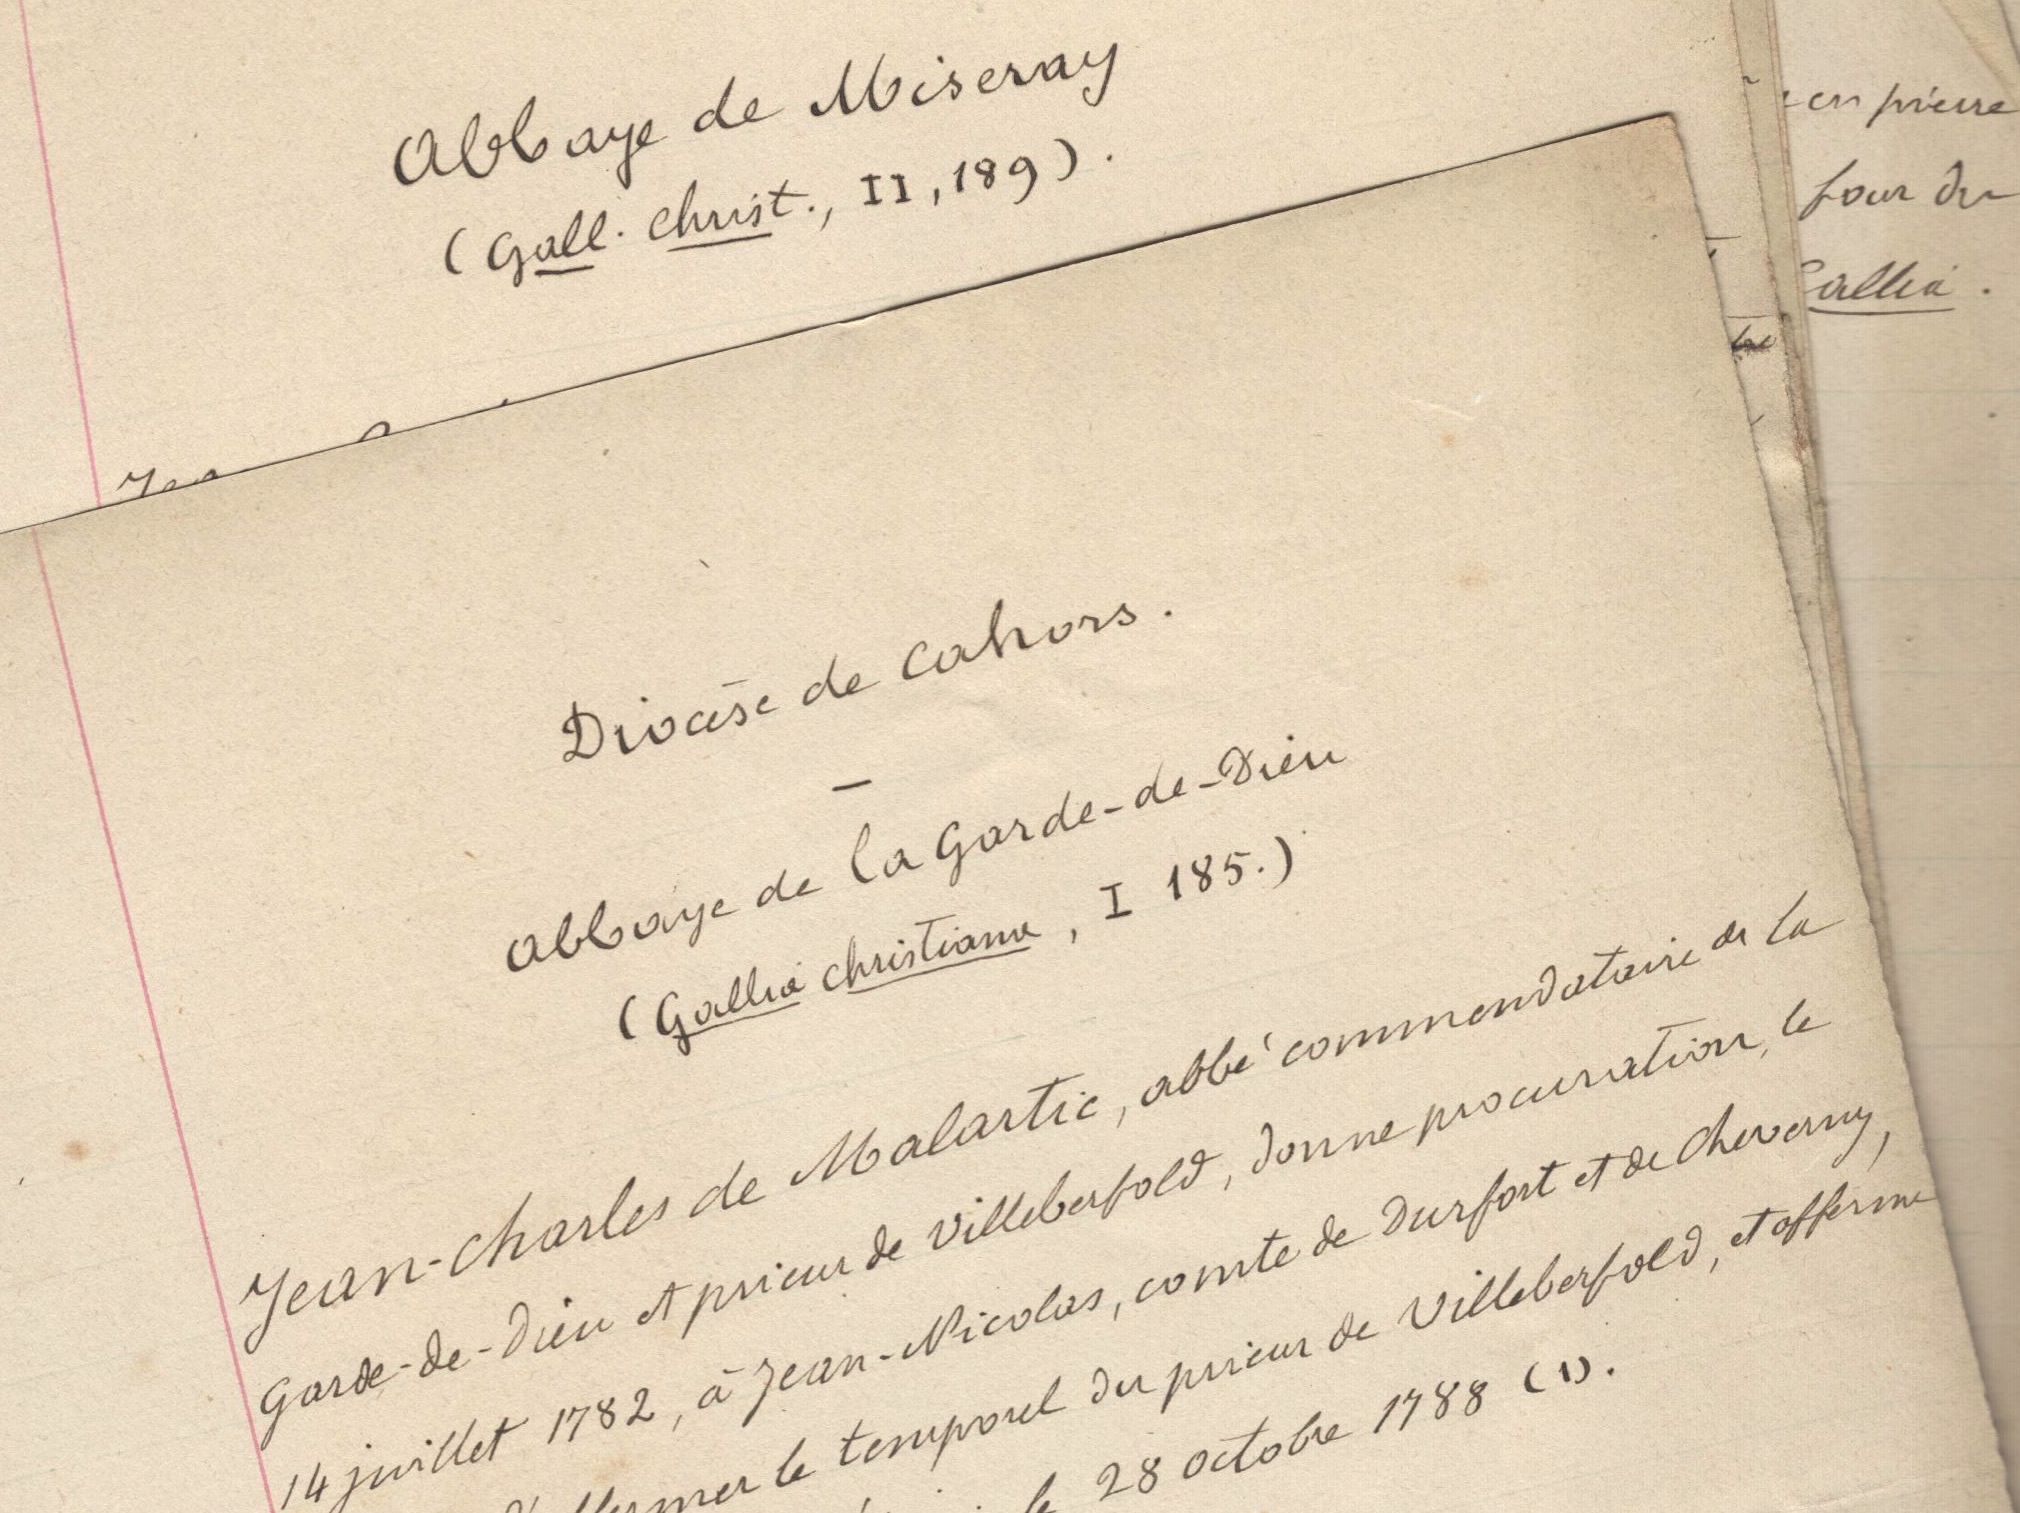 Abbaye de Miseray
(Gall. Christ., II, 189).
en pierre
four du
Gallia.
Diocèse de Cahors.
—
Abbaye de la Garde-de-Dieu
(Gallia Christiana, I 185.)
Jean-Charles de Malartic, abbé commendataire de la
Garde-de-Dieu et prieur de Villeberfold, donne procuration, le
14 juillet 1782, à Jean-Nicolas, comte de Durfort et de Cheverny,
d'affermer le temporel du prieur de Villeberfold, et afferme
le 28 octobre 1788 (1).